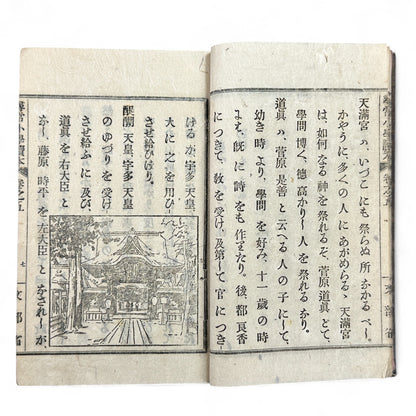 天滿宮ハ、いづこにも祭らぬ所なかるべし。
かやうに、多くの人にあがめらるゝ天滿宮
は、如何なる神を祭れるぞ。菅原道眞とて、
學問博く、德高かりし人を祭れるなり。
道眞ハ、菅原是善と云へる人の子にして、
幼き時より、學問を好み、十一歲の時
よく、既に詩をも作またり。後、都良香
につきて、敎を受け、及第して官につき
けるが、宇多天皇、
大に之を用ひ
させ給ひけり。
醍醐天皇、宇多天皇
のゆづりを受け
させ給ふに及び
道眞を右大臣と
なし、藤原時平を左大臣となされしが、
尋常小學讀本
卷之五
七
文部省